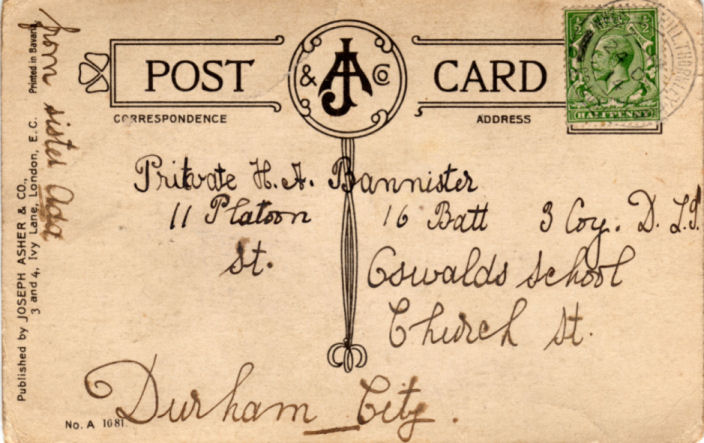 POST & JA Co CARD
CORRESPONDENCE
ADDRESS
HALFPENNY
Pritvate H. A. Bannister
11 Platoon 16 Batt 3 Coy. D. L. I.
St. Oswalds School
Church St.
Durham City.
No. A 1081.
from sister Ada
Printed in Bavaria
Published by JOSEPH ASHER & CO.,
3 and 4, Ivy Lane, London, E.C.